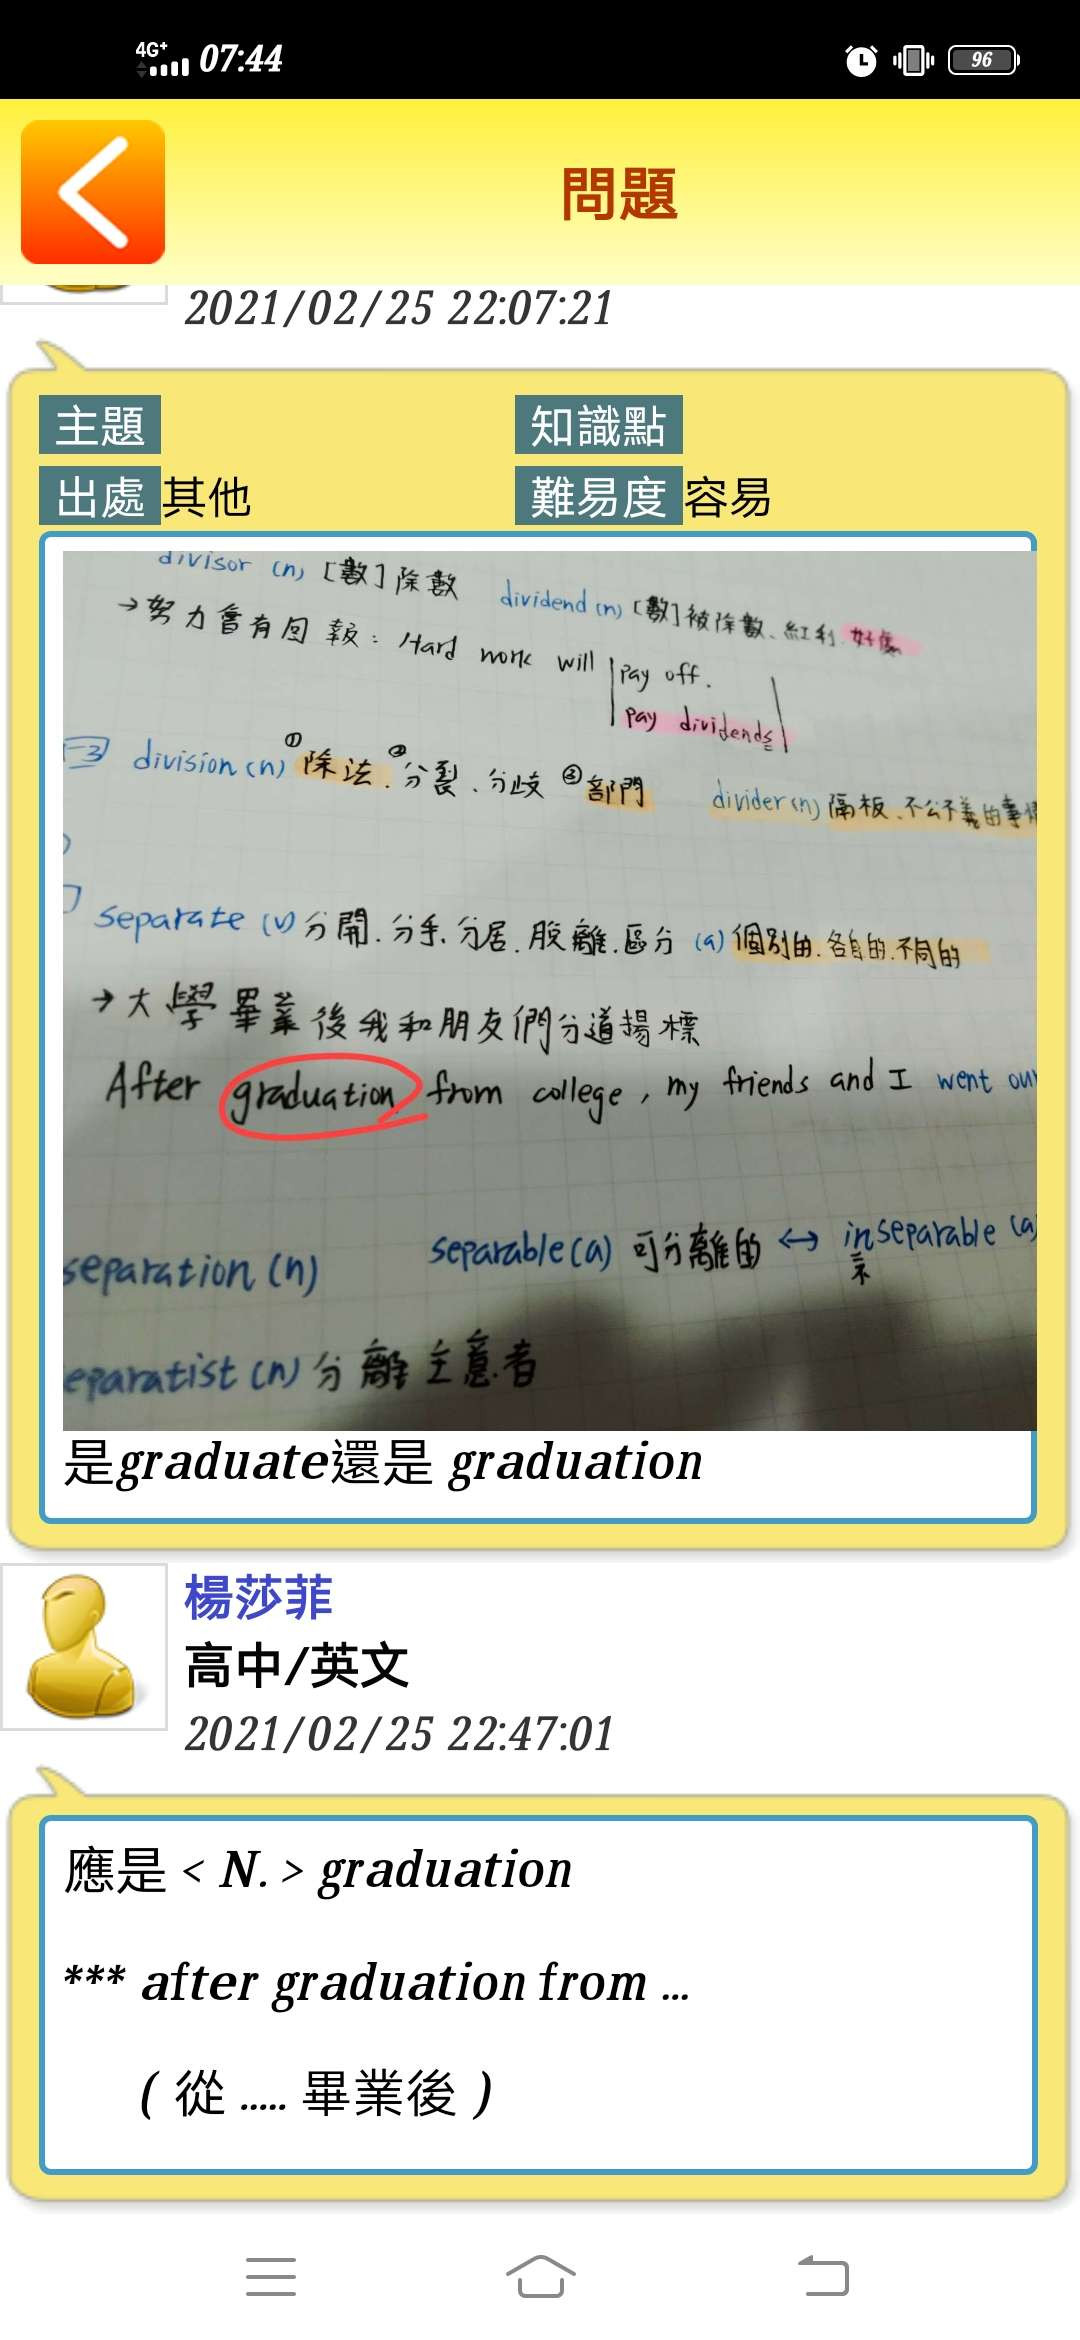 4G+ 07:44 96
問題
2021/02/25 22:07:21
主題 知識點
出處 其他 難易度 容易
divisor (n) [數] 除數 dividend (n) [數] 被除數、紅利、好處
→ 努力會有回報: Hard work will pay off.
pay dividends
division (n) ① 除法. ② 分裂、分歧 ③ 部門 divider (n) 隔板、不公不義的事情
separate (v) 分開. 分手. 分居. 脫離. 區分 (a) 個別的. 各自的. 不同的
→ 大學畢業後我和朋友們分道揚標
After graduation from college, my friends and I went our
separation (n) separable (a) 可分離的 ↔ inseparable (a)
eparatist (n) 分離主意者
是graduate還是 graduation
楊莎菲
高中/英文
2021/02/25 22:47:01
應是 < N. > graduation
*** after graduation from ...
( 從 ..... 畢業後 )